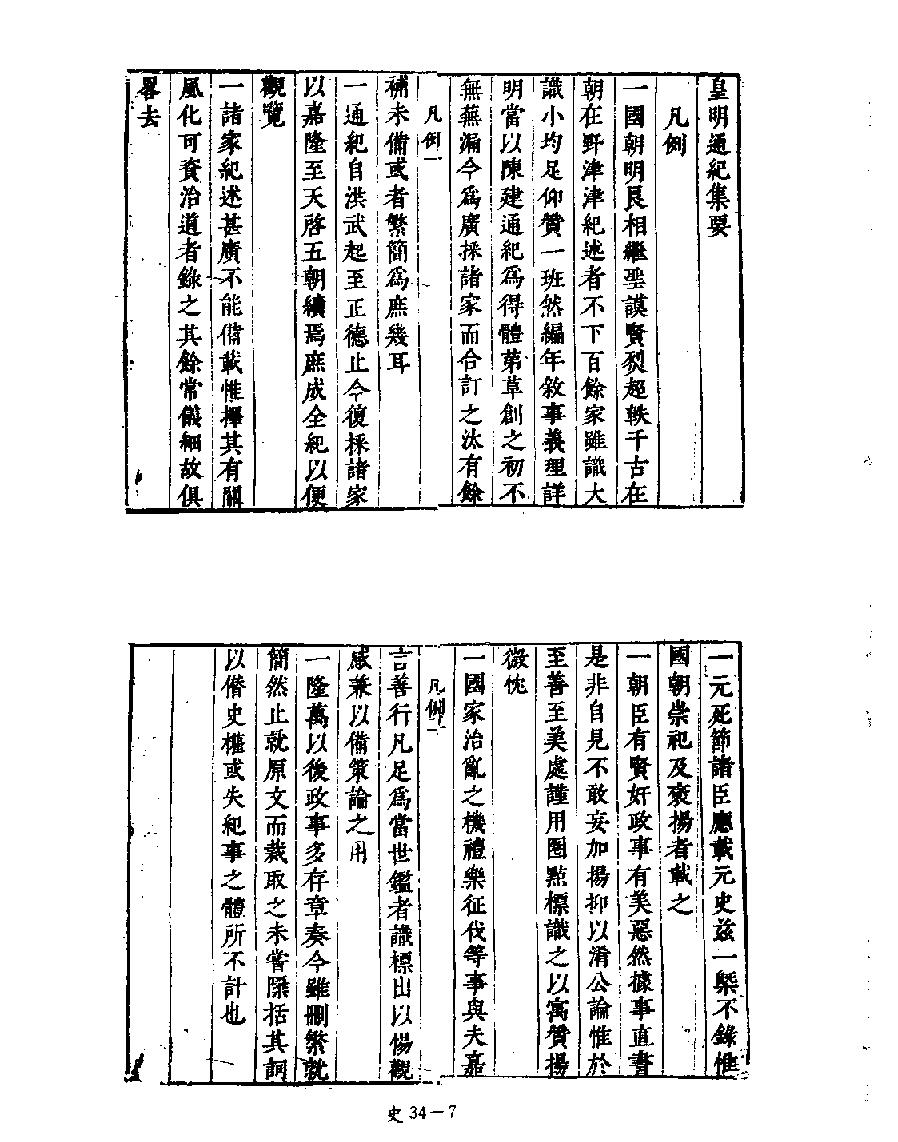 皇明通紀集要
凡例
一國朝明良相繼聖謨賢烈超軼千古在
朝在野津津紀述者不下百餘家雖識大
識小均足仰贊一班然編年敘事義理詳
明當以陳建通紀爲得體第草創之初不
無蕪漏今爲廣採諸家而合訂之汰有餘
凡例 一
補未備或者繁簡爲庶幾耳
一通紀自洪武起至正德止今復採諸家
以嘉隆至天啓五朝續焉庶成全紀以便
觀覽
一諸家紀述甚廣不能備載惟擇其有關
風化可資治道者錄之其餘常儀細故俱
畧去
一元死節諸臣應載元史茲一槩不錄惟
國朝崇祀及褒揚者載之
一朝臣有賢奸政事有美惡然據事直書
是非自見不敢妄加揚抑以淆公論惟於
至善至美處謹用圈點標識之以寓贊揚
微忱
一國家治亂之機禮樂征伐等事與夫嘉
凡例
言善行凡足爲當世鑑者識標出以傷觀
感兼以備策論之用
一隆萬以後政事多存章奏今雖刪繁就
簡然止就原文而裁取之未嘗檃括其詞
以僭史權或失紀事之體所不計也
史 34－7